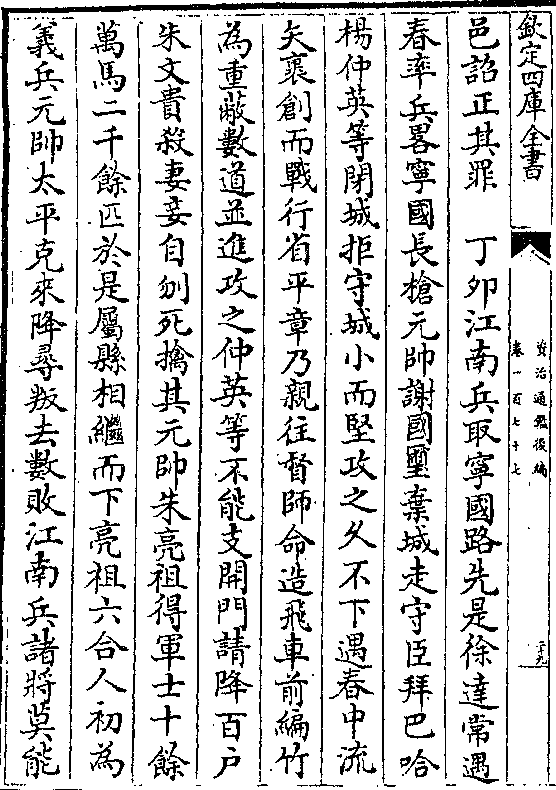 欽定四庫全書
資治通鑑後編
卷一百七十七
二十九
邑詔正其罪　丁卯江南兵取寧國路先是徐達常遇
春率兵畧寧國長槍元帥謝國璽棄城走守臣拜巴哈
楊仲英等閉城拒守城小而堅攻之久不下遇春中流
矢裹創而戰行省平章乃親往督師命造飛車前編竹
為重蔽數道並進攻之仲英等不能支開門請降百户
朱文貴殺妻妾自刎死擒其元帥朱亮祖得軍士十餘
萬馬二千餘匹於是屬縣相繼而下亮祖六合人初為
義兵元帥太平克來降尋叛去數敗江南兵諸將莫能